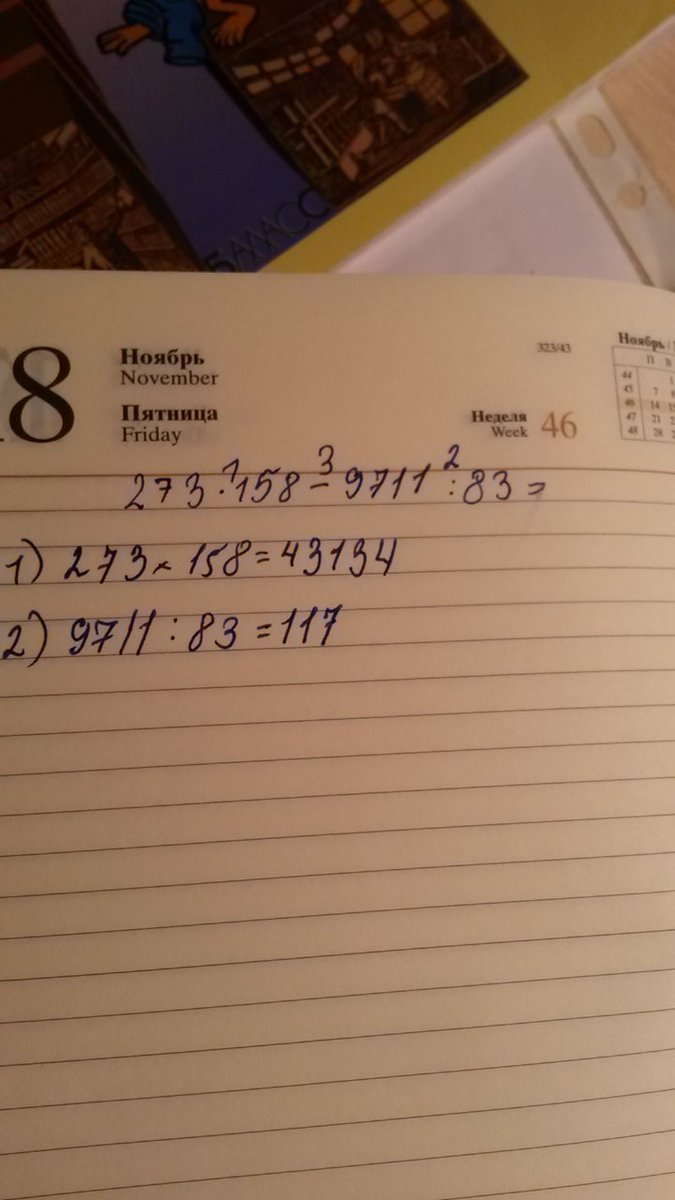 БАЛАСС
18
Ноябрь
November
Пятница
Friday
323/43
Неделя
Week 46
Ноябрь /
П В
44 1
45 7 8
46 14 15
47 21 22
48 28
1 3 2
273 · 158 − 9711 : 83 =
1) 273 × 158 = 43134
2) 9711 : 83 = 117